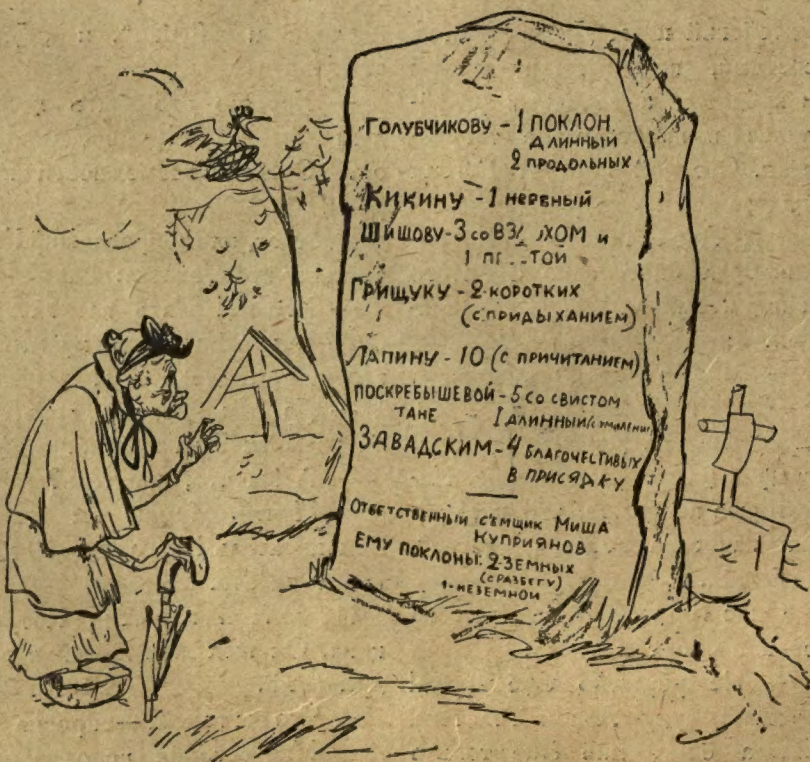 ГОЛУБЧИКОВУ - 1 ПОКЛОН
ДЛИННЫЙ
2 ПРОДОЛЬНЫХ
КИКИНУ - 1 НЕРВНЫЙ
ШИШОВУ - 3 СО и
1
ГРИЩУКУ - 2 КОРОТКИХ
(С ПРИДЫХАНИЕМ)
ЛАПИНУ - 10 (С ПРИЧИТАНИЕМ)
ПОСКРЕБЫШЕВОЙ - 5 СО СВИСТОМ
ТАНЕ 1 ДЛИННЫЙ
ЗАВАДСКИМ - 4 БЛАГОЧЕСТИВЫХ
В ПРИСЯДКУ
ОТВЕТСТВЕННЫЙ С'ЕМЩИК МИША
КУПРИЯНОВ
ЕМУ ПОКЛОНЫ: 2 ЗЕМНЫХ
(С РАЗБЕГУ)
1 - НЕЗЕМНОЙ